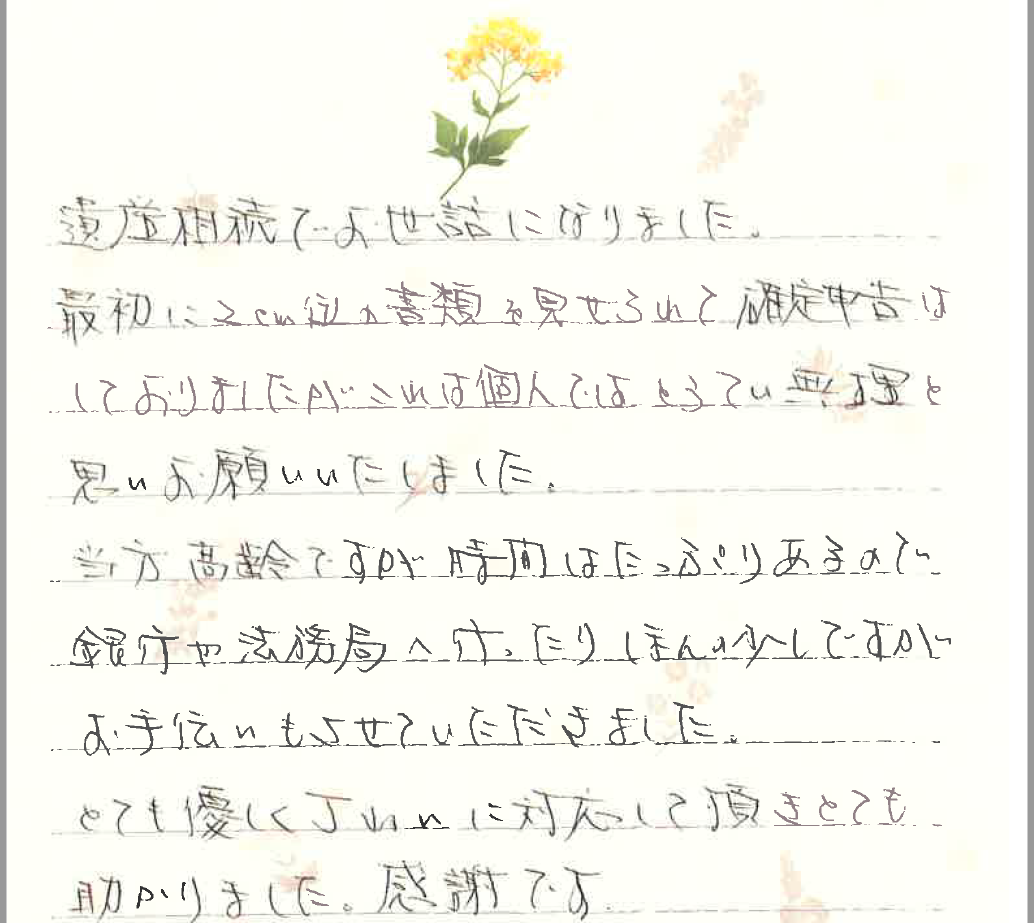 遺産相続でお世話になりました。
最初に2cm位の書類を見せられて確定申告は
しておりましたがこれは個人ではとうてい無理と
思いお願いいたしました。
当方高齢ですが時間はたっぷりあるので
銀行や法務局へ行ったりほんの少しですが
お手伝いもさせていただきました。
とても優しく丁ねいに対応して頂きとても
助かりました。感謝です